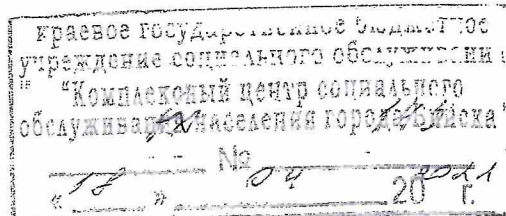 краевое государственное бюджетное
учреждение социального обслуживани
" "Комплексный центр социального
обслуживания населения города Бийска"
№
« 17 » 04 2021 г.